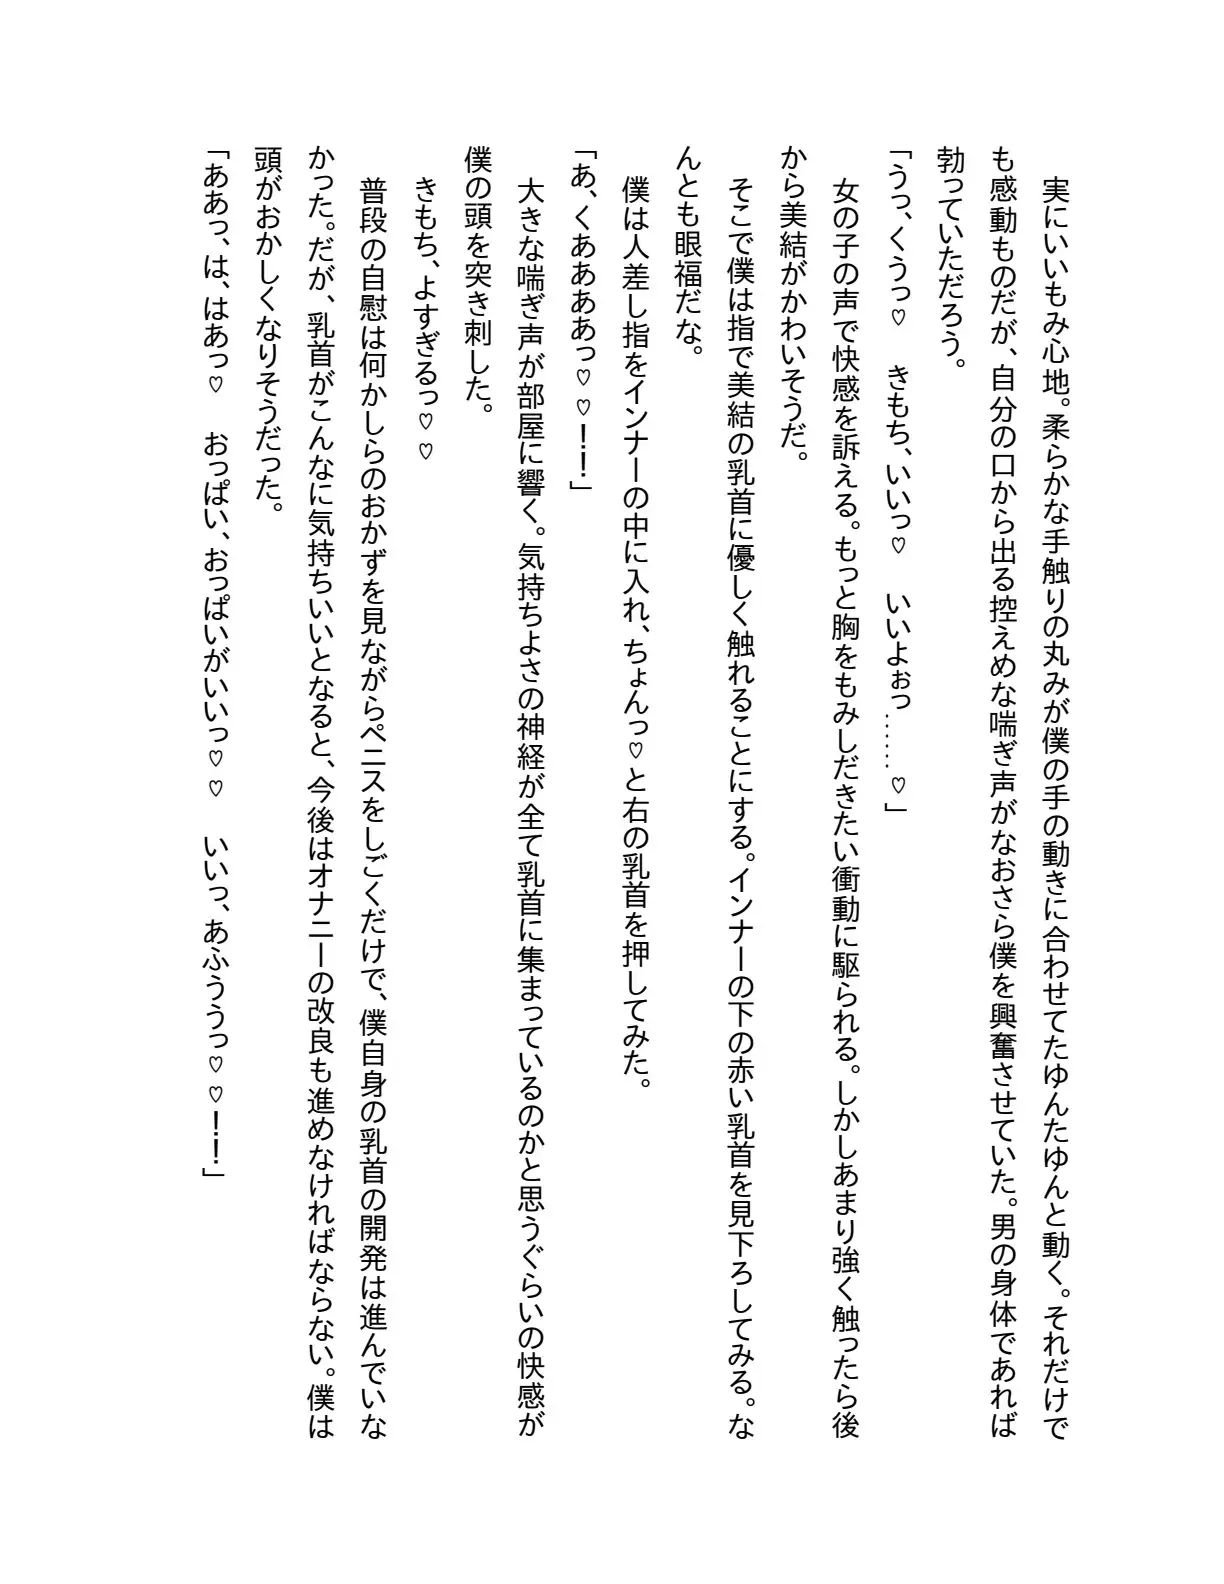 実にいいもみ心地。柔らかな手触りの丸みが僕の手の動きに合わせてたゆんたゆんと動く。それだけで
も感動ものだが、自分の口から出る控えめな喘ぎ声がなおさら僕を興奮させていた。男の身体であれば
勃っていただろう。
「うっ、くうっ♡　きもち、いいっ♡　いいよぉっ……♡」
　女の子の声で快感を訴える。もっと胸をもみしだきたい衝動に駆られる。しかしあまり強く触ったら後
から美結がかわいそうだ。
　そこで僕は指で美結の乳首に優しく触れることにする。インナーの下の赤い乳首を見下ろしてみる。な
んとも眼福だな。
　僕は人差し指をインナーの中に入れ、ちょんっ♡と右の乳首を押してみた。
「あ、くああああっ♡♡！！」
　大きな喘ぎ声が部屋に響く。気持ちよさの神経が全て乳首に集まっているのかと思うぐらいの快感が
僕の頭を突き刺した。
　きもち、よすぎるっ♡♡
　普段の自慰は何かしらのおかずを見ながらペニスをしごくだけで、僕自身の乳首の開発は進んでいな
かった。だが、乳首がこんなに気持ちいいとなると、今後はオナニーの改良も進めなければならない。僕は
頭がおかしくなりそうだった。
「ああっ、は、はあっ♡　おっぱい、おっぱいがいいっ♡♡　いいっ、あふううっ♡♡！！」